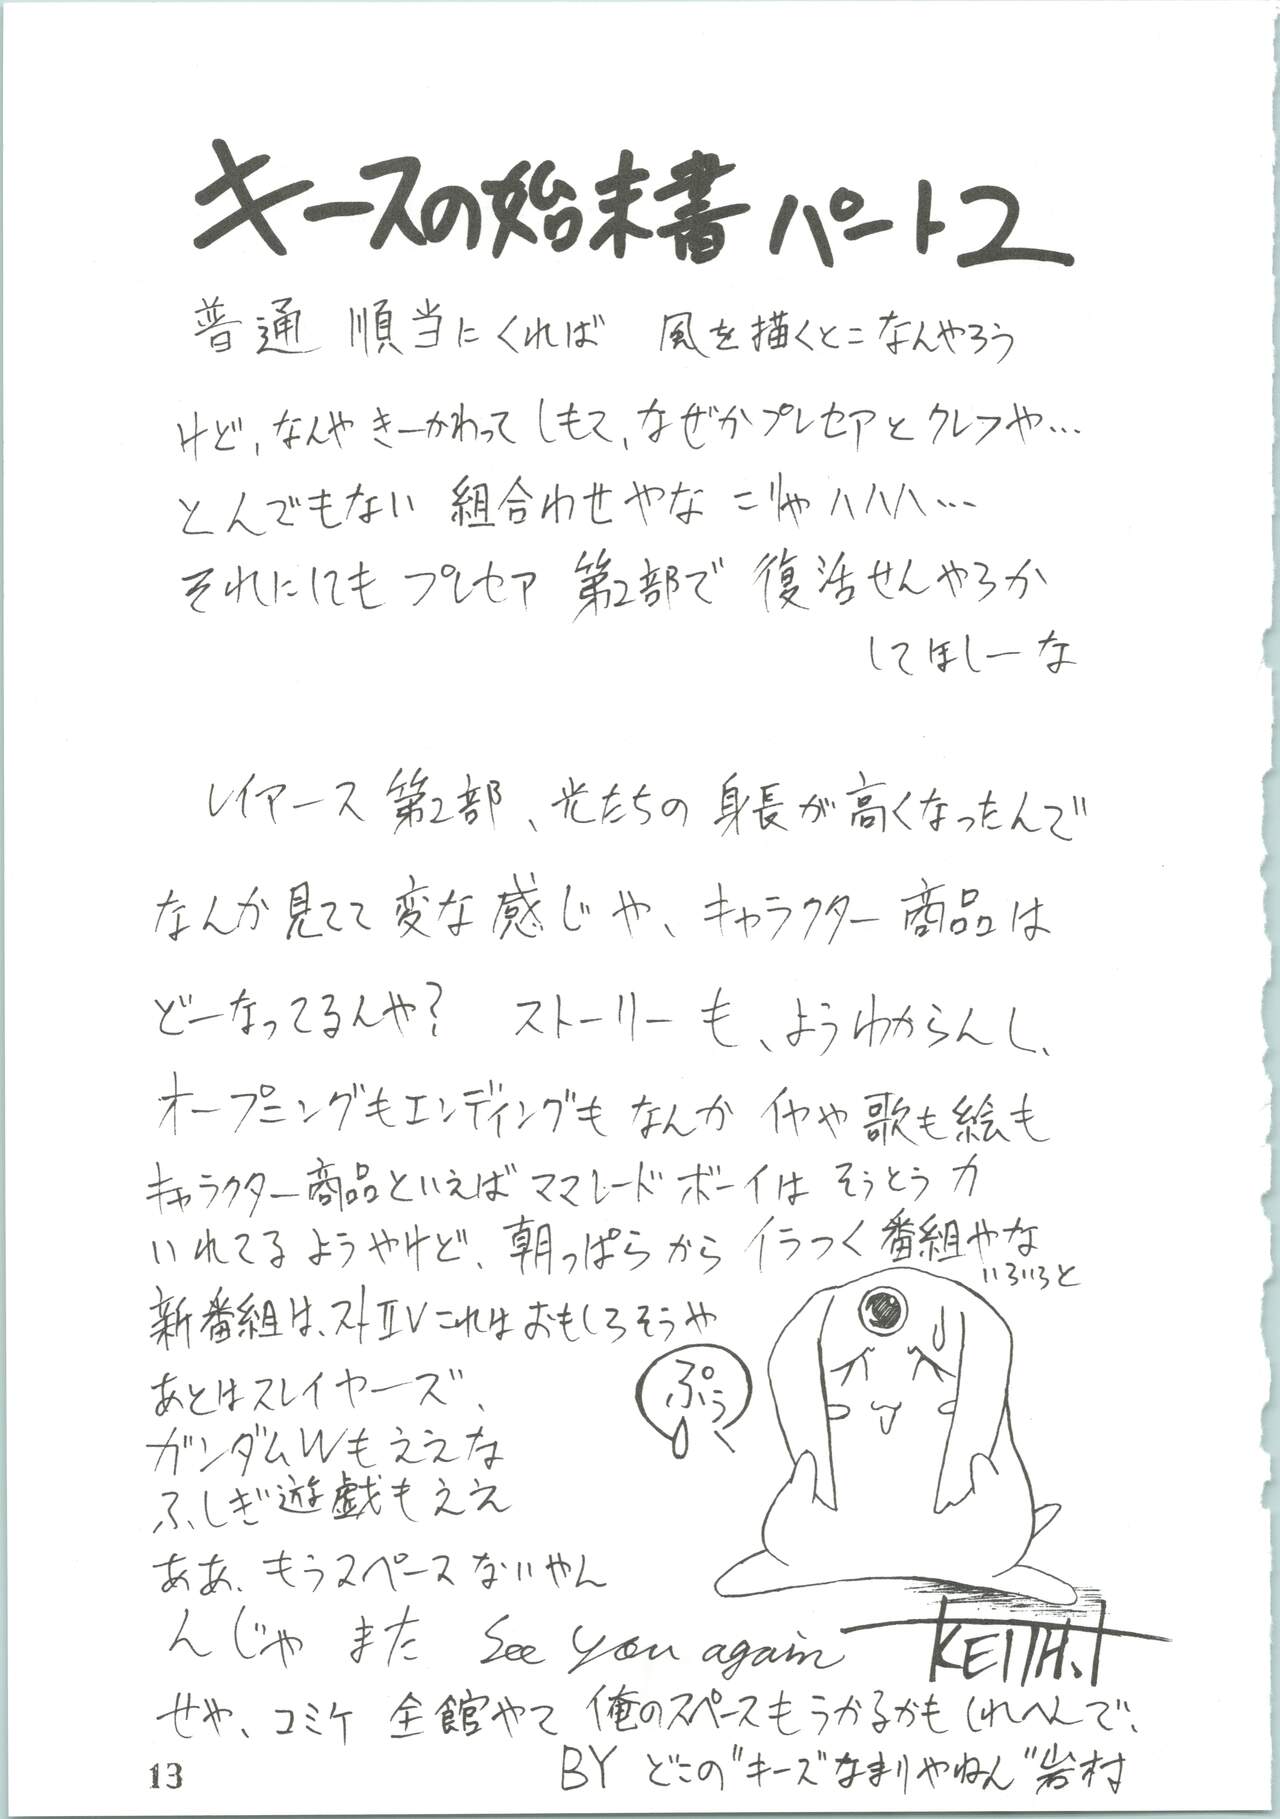 キースの始末書 パート2
普通 順当にくれば 風を描くとこなんやろう
けど、なんや きーかわって しもて、なぜかプレセアとクレフや…
とんでもない 組合わせやな こりゃハハハ…
それにしても プレセア 第2部で 復活せんやろか
してほしーな
レイアース 第2部、光たちの 身長が高くなったんで
なんか見てて 変な感じや、キャラクター商品は
どーなってるんや? ストーリーも、ようわからんし、
オープニングもエンディングも なんか イヤや 歌も絵も
キャラクター商品といえば ママレードボーイは そうとう力
いれてるようやけど、朝っぱらから イラつく番組やな
いろいろと
新番組は、ストIIV これはおもしろそうや
あとはスレイヤーズ、
ガンダムWもええな
ふしぎ遊戯もええ
ぷぅ
ああ、もうスペースないやん
んじゃ また See you again
KEITH.I
せや、コミケ 全館やて 俺のスペースもうかるかもしれへんで、
BY どこの"キーズ"なまりやねん"岩村
13